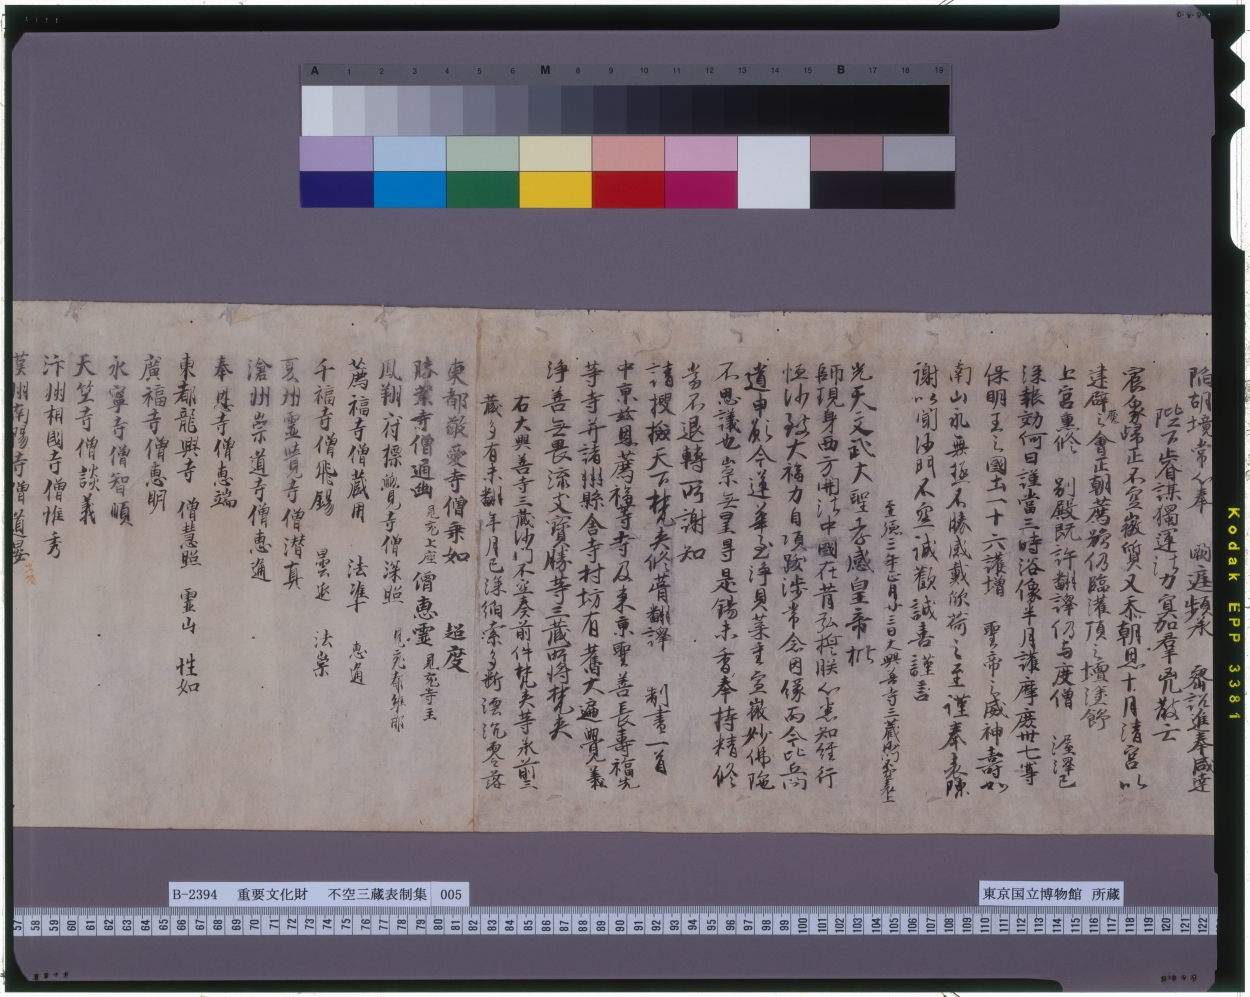 陷胡境常心奉 闕庭頻承 密詔進奉咸達
陛下睿謀獨運法力冥加羣兇散亡
宸象歸正不空微質又忝朝恩十月清宮以
建辟之會正朝薦號仍臨灌頂之壇塗飾
上宮熏修 別殿既許翻譯仍与度僧 渥澤已
深報効何日謹當三時浴像半月護摩庶卅七尊
保明王之國土一十六護增 聖帝之威神壽如
南山永無極不勝感戴欣荷之至謹奉表陳
謝以聞沙門不空誠歡誠喜謹言
至德三年正月 三日大興善寺三藏沙門不空表上
光天文武大聖孝感皇帝批
師現身西方開法中國在昔弘誓朕心悉知經行
恒沙致大福力自項跋涉常念因緣而今比丘向
道申願今送華至淨貝葉重宣微妙佛陁
不思議也崇無量壽是錫末香奉持精修
當不退轉所謝知
請搜撿天下梵夾修葺翻譯 制書一首
中京慈恩薦福等寺及東京聖善長壽福先
等寺并諸州縣舍寺村坊有舊大遍覺義
淨善無畏流支寶勝等三藏所將梵夾
右大興善寺三藏沙門不空奏前件梵夾等承前三
藏多有未翻年月已深絛索多斷湮沉零落
東都敬愛寺僧乘如 超度
勝業寺僧通幽 見充上座 僧惠靈 見充寺主
鳳翔府標覺寺僧深照 見充都維那
薦福寺僧藏用 法準 惠通
千福寺僧飛錫 曇遂 法崇
夏州靈覺寺僧潛真
滄州崇道寺僧惠通
奉恩寺僧惠端
東都龍興寺 僧慧照 靈山 性如
廣福寺僧惠明
永寧寺僧智順
天竺寺僧談義
汴州相國寺僧惟秀
漢州南陽寺僧道混
A 1 2 3 4 5 6 M 8 9 10 11 12 13 14 15 B 17 18 19
B-2394 重要文化財 不空三蔵表制集 005
東京国立博物館 所蔵
57 58 59 60 61 62 63 64 65 66 67 68 69 70 71 72 73 74 75 76 77 78 79 80 81 82 83 84 85 86 87 88 89 90 91 92 93 94 95 96 97 98 99 100 101 102 103 104 105 106 107 108 109 110 111 112 113 114 115 116 117 118 119 120 121 122
Kodak EPP 3381